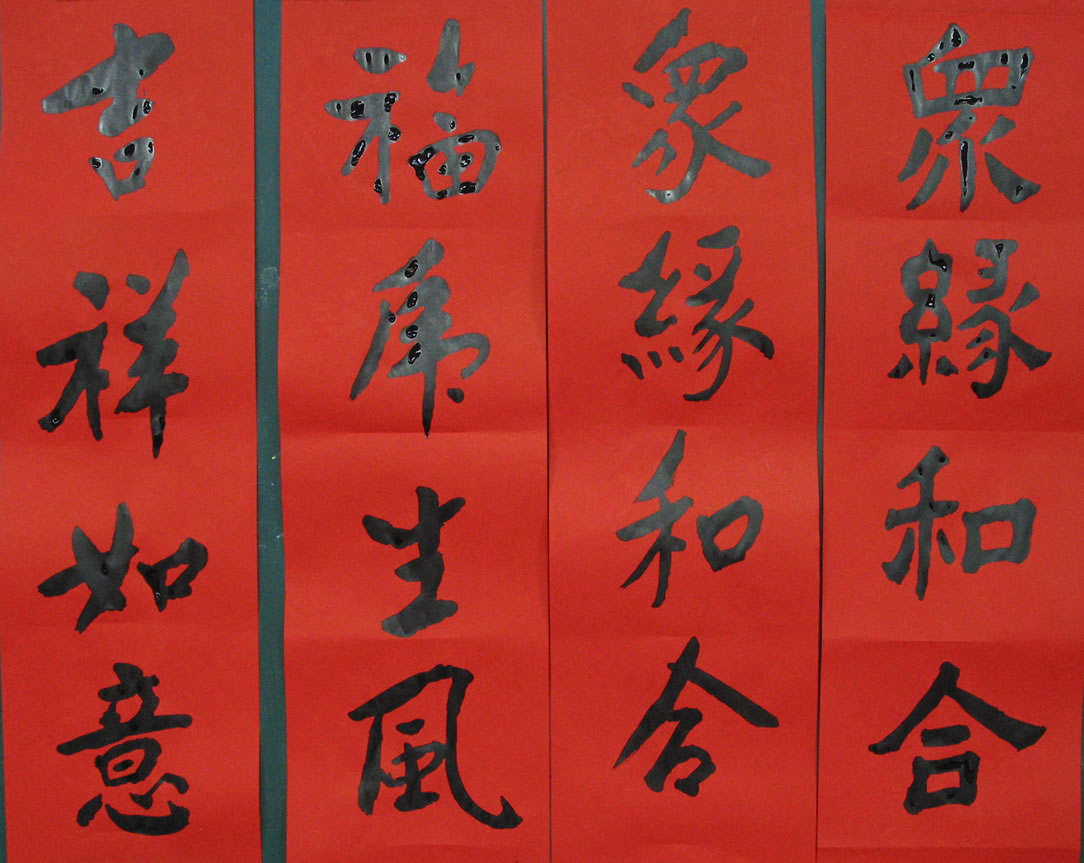 眾緣和合
眾緣和合
福虎生風
吉祥如意